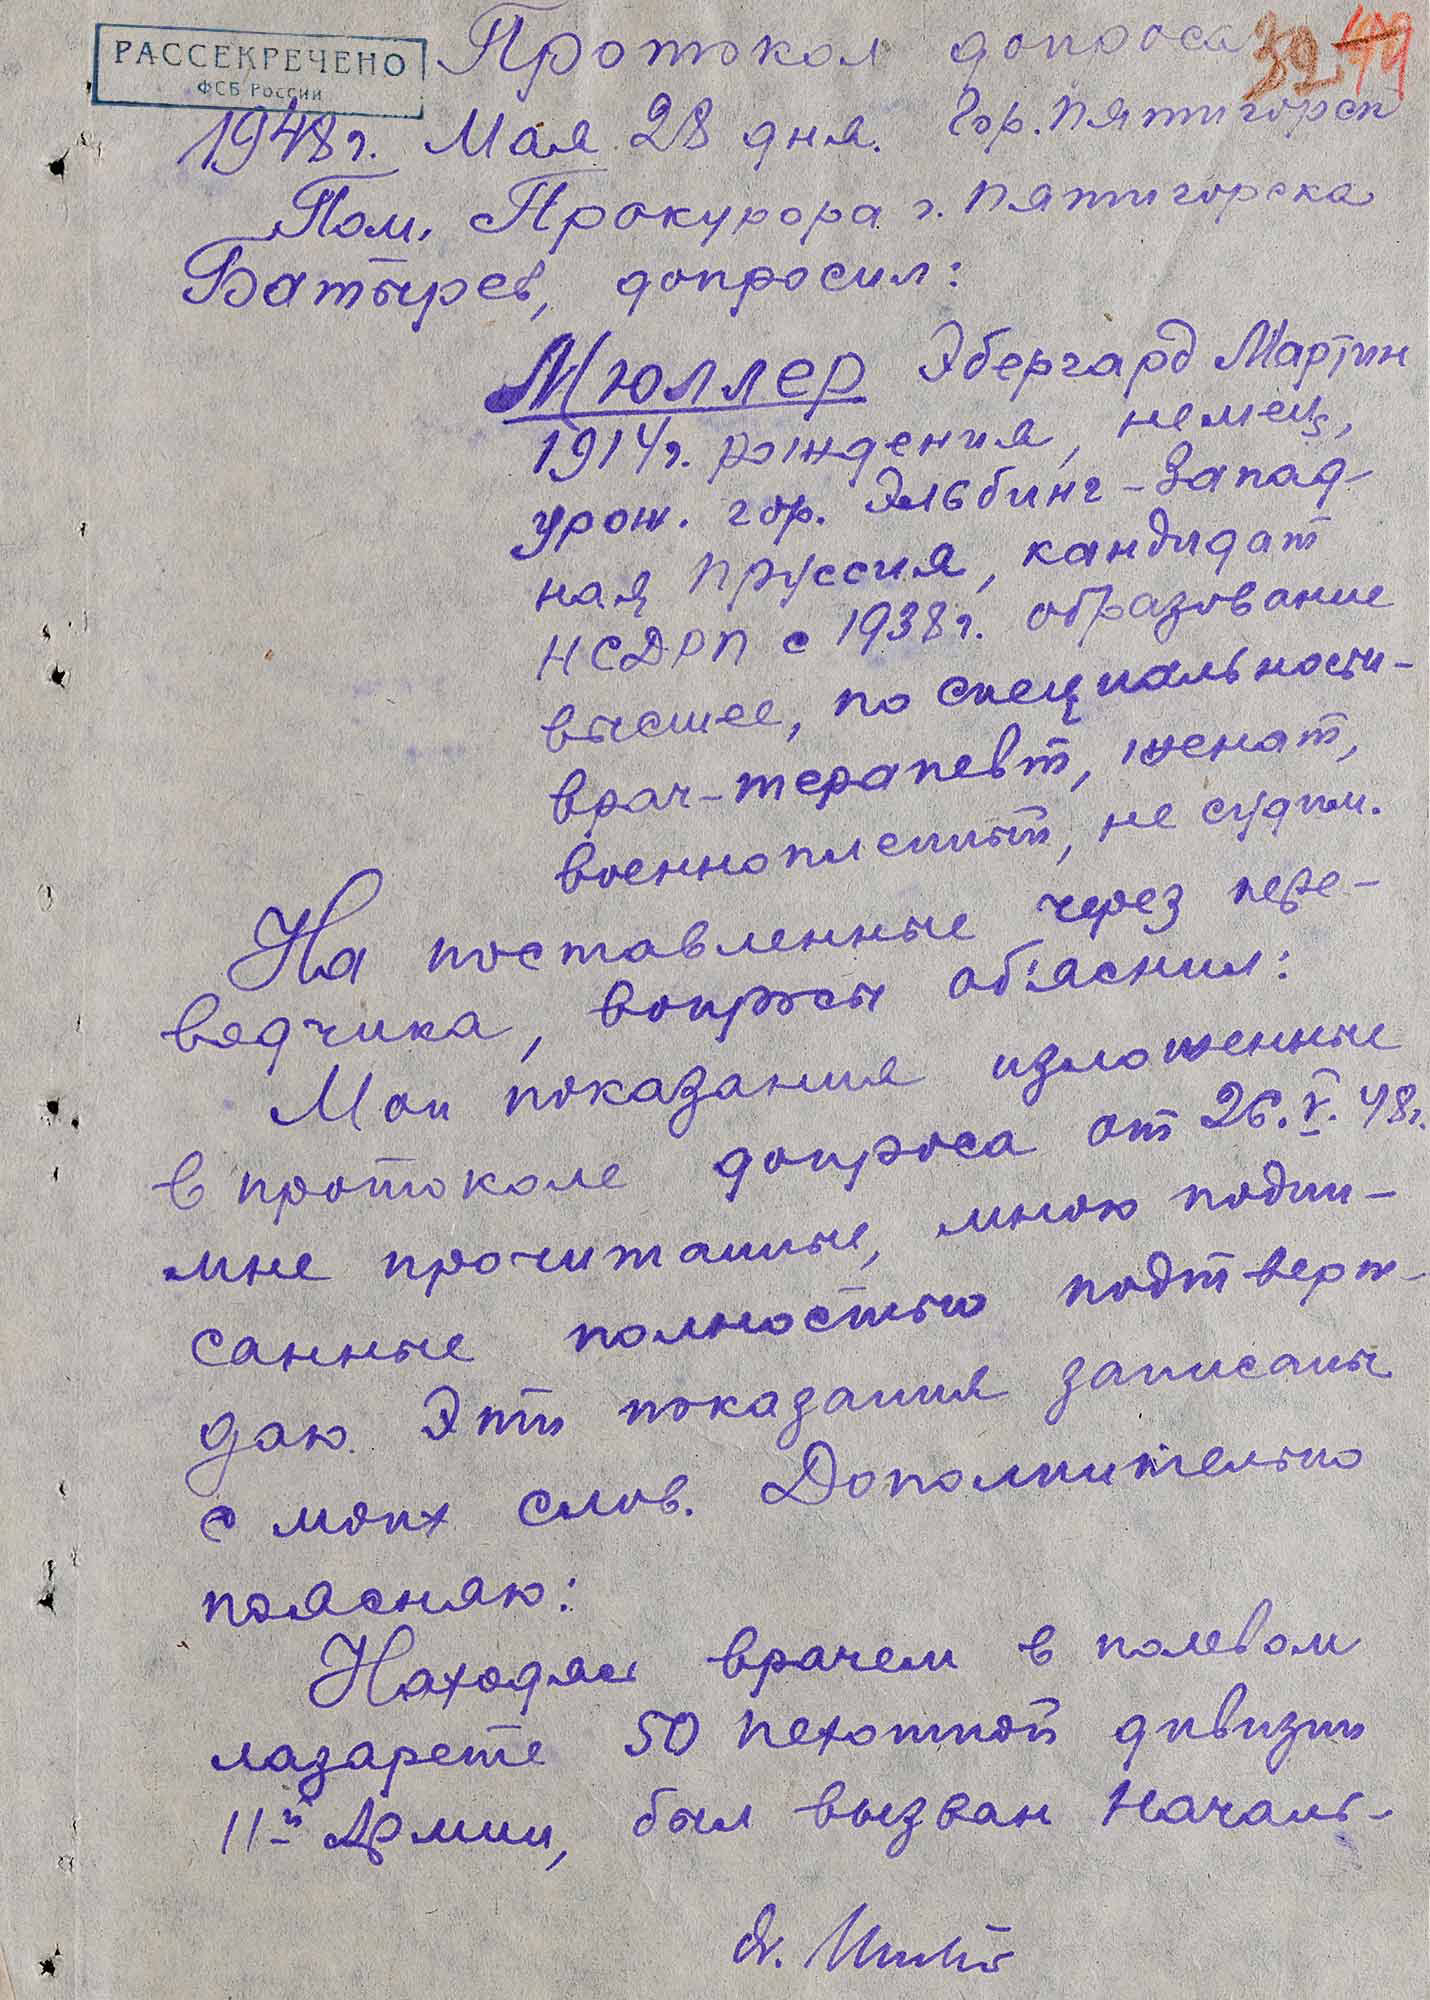 РАССЕКРЕЧЕНО
ФСБ РОССИИ
Протокол допроса
39 49
1948г. Мая 28 дня. Гор. Пятигорск
Пом. Прокурора г. Пятигорска
Батырев, допросил:
Мюллер Эбергард Мартин
1914г. рождения, немец,
урож. гор. Эльбинг-Запад-
ная Пруссия, кандидат
НСДРП с 1938г. образование
высшее, по специальности-
врач-терапевт, женат,
военнопленный, не судим.
На поставленные через пере-
водчика, вопросы об'яснил:
Мои показания изложенные
в протоколе допроса от 26.V.48г.
мне прочитанные, мною подпи-
санные полностью подтверж-
даю. Эти показания записаны
с моих слов. Дополнительно
поясняю:
Находясь врачем в полевом
лазарете 50 пехотной дивизии
11-й Армии, был вызван Началь-
dr. Müller